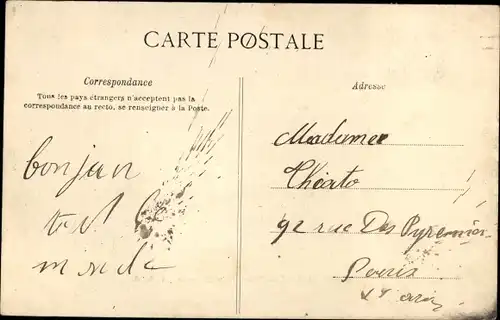 CARTE POSTALE
Correspondance
Tous les pays étrangers n'acceptent pas la
correspondance au recto, se renseigner à la Poste.
bonjour
monde
Adresse
Madame
92 rue Des Pyrenées
Paris